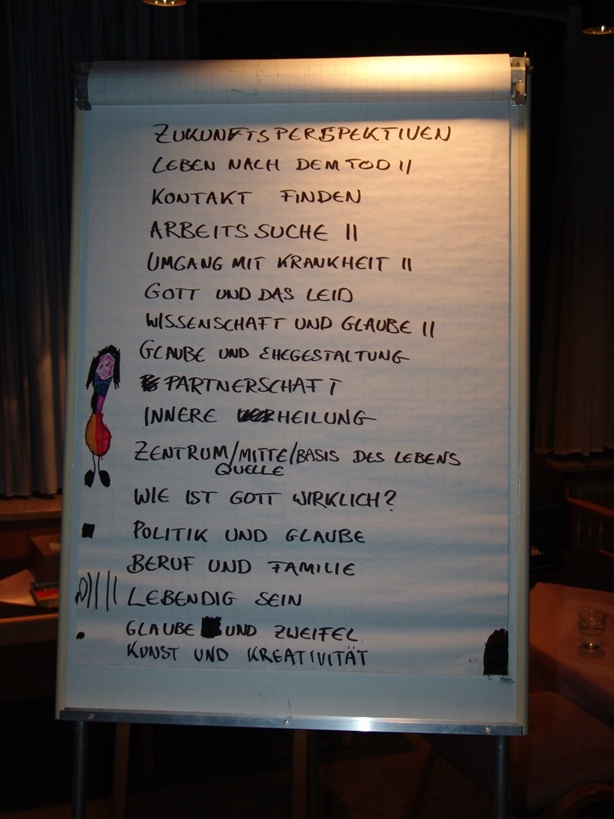 ZUKUNFTSPERSPEKTIVEN
LEBEN NACH DEM TOD II
KONTAKT FINDEN
ARBEITSSUCHE II
UMGANG MIT KRANKHEIT II
GOTT UND DAS LEID
WISSENSCHAFT UND GLAUBE II
GLAUBE UND EHEGESTALTUNG
PARTNERSCHAFT
INNERE HEILUNG
ZENTRUM/MITTE/BASIS DES LEBENS
QUELLE
WIE IST GOTT WIRKLICH?
POLITIK UND GLAUBE
BERUF UND FAMILIE
LEBENDIG SEIN
GLAUBE UND ZWEIFEL
KUNST UND KREATIVITÄT